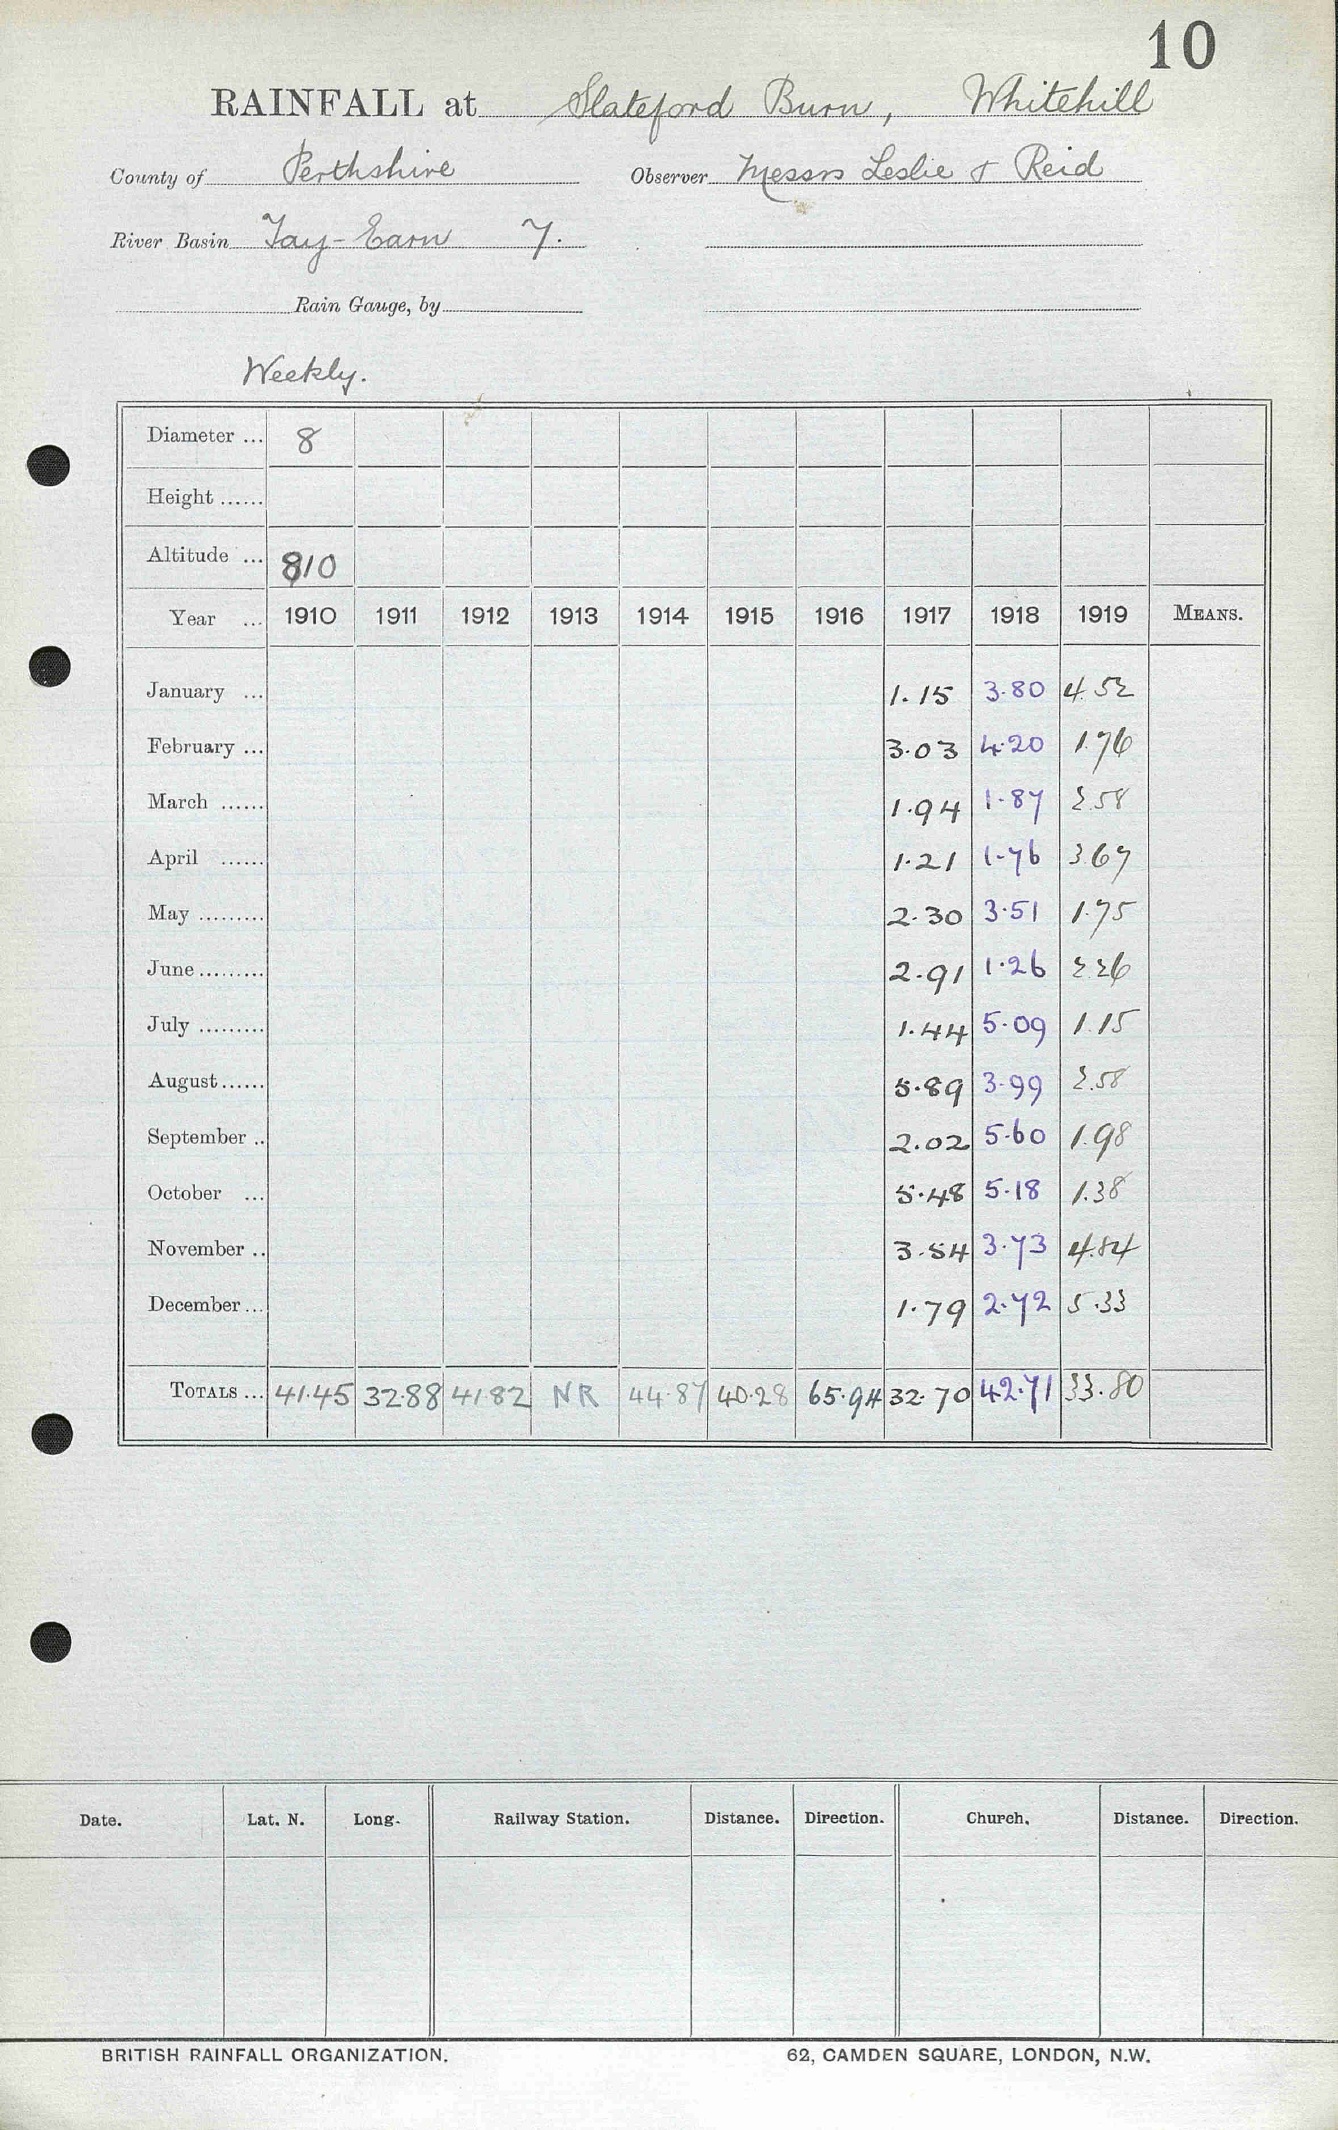 10
RAINFALL at Slateford Burn, Whitehill
County of Perthshire Observer Messrs Leslie & Reid
River Basin Tay-Earn 7.
Rain Gauge, by
Weekly.
Diameter ... 8
Height ......
Altitude ... 810
Year ... 1910 1911 1912 1913 1914 1915 1916 1917 1918 1919 MEANS.
January ... 1.15 3.80 4.52
February ... 3.03 4.20 1.76
March ...... 1.94 1.87 2.58
April ...... 1.21 1.76 3.67
May ......... 2.30 3.51 1.75
June ......... 2.91 1.26 2.26
July ......... 1.44 5.09 1.15
August ...... 5.89 3.99 2.58
September .. 2.02 5.60 1.98
October ... 5.48 5.18 1.38
November .. 3.54 3.73 4.84
December ... 1.79 2.72 5.33
TOTALS ... 41.45 32.88 41.82 NR 44.87 40.28 65.94 32.70 42.71 33.80
Date. Lat. N. Long. Railway Station. Distance. Direction. Church. Distance. Direction.
BRITISH RAINFALL ORGANIZATION. 62, CAMDEN SQUARE, LONDON, N.W.